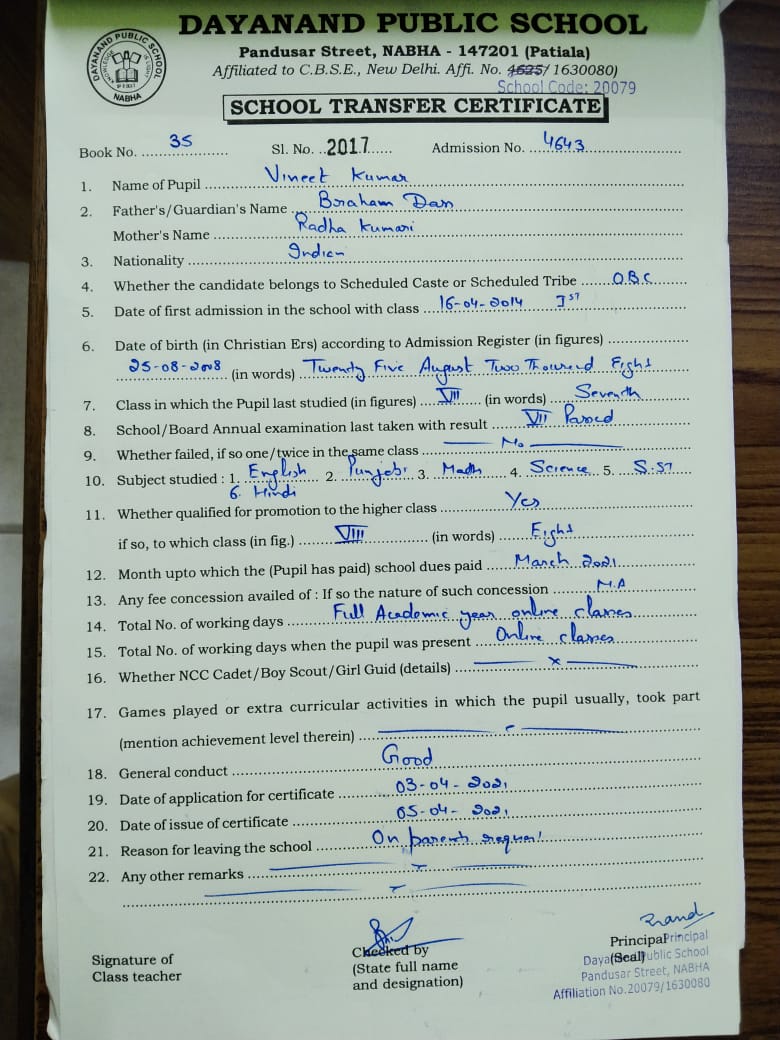 DAYANAND PUBLIC SCHOOL
Pandusar Street, NABHA - 147201 (Patiala)
Affiliated to C.B.S.E., New Delhi. Affi. No. 4625/ 1630080)
School Code: 20079
DAYANAND PUBLIC SCHOOL
NABHA
SCHOOL TRANSFER CERTIFICATE
Book No. 35 Sl. No. 2017 Admission No. 4643
1. Name of Pupil Vineet Kumar
2. Father's/Guardian's Name Braham Dass
Mother's Name Radha Kumari
3. Nationality Indian
4. Whether the candidate belongs to Scheduled Caste or Scheduled Tribe O.B.C
5. Date of first admission in the school with class 16-04-2014 Ist
6. Date of birth (in Christian Ers) according to Admission Register (in figures)
25-08-2008 (in words) Twenty Five August Two Thousand Eight
7. Class in which the Pupil last studied (in figures) VII (in words) Seventh
8. School/Board Annual examination last taken with result VII Passed
9. Whether failed, if so one/twice in the same class No
10. Subject studied : 1. English 2. Punjabi 3. Math 4. Science 5. S.ST
6. Hindi
11. Whether qualified for promotion to the higher class Yes
if so, to which class (in fig.) VIII (in words) Eight
12. Month upto which the (Pupil has paid) school dues paid March 2021
13. Any fee concession availed of : If so the nature of such concession N.A
14. Total No. of working days Full Academic year online classes
15. Total No. of working days when the pupil was present Online classes
16. Whether NCC Cadet/Boy Scout/Girl Guid (details) x
17. Games played or extra curricular activities in which the pupil usually, took part
(mention achievement level therein)
18. General conduct Good
19. Date of application for certificate 03-04-2021
20. Date of issue of certificate 05-04-2021
21. Reason for leaving the school On parents request
22. Any other remarks
Signature of
Class teacher
Checked by
(State full name
and designation)
Principal
(Seal)
Principal
Dayanand Public School
Pandusar Street, NABHA
Affiliation No.20079/1630080